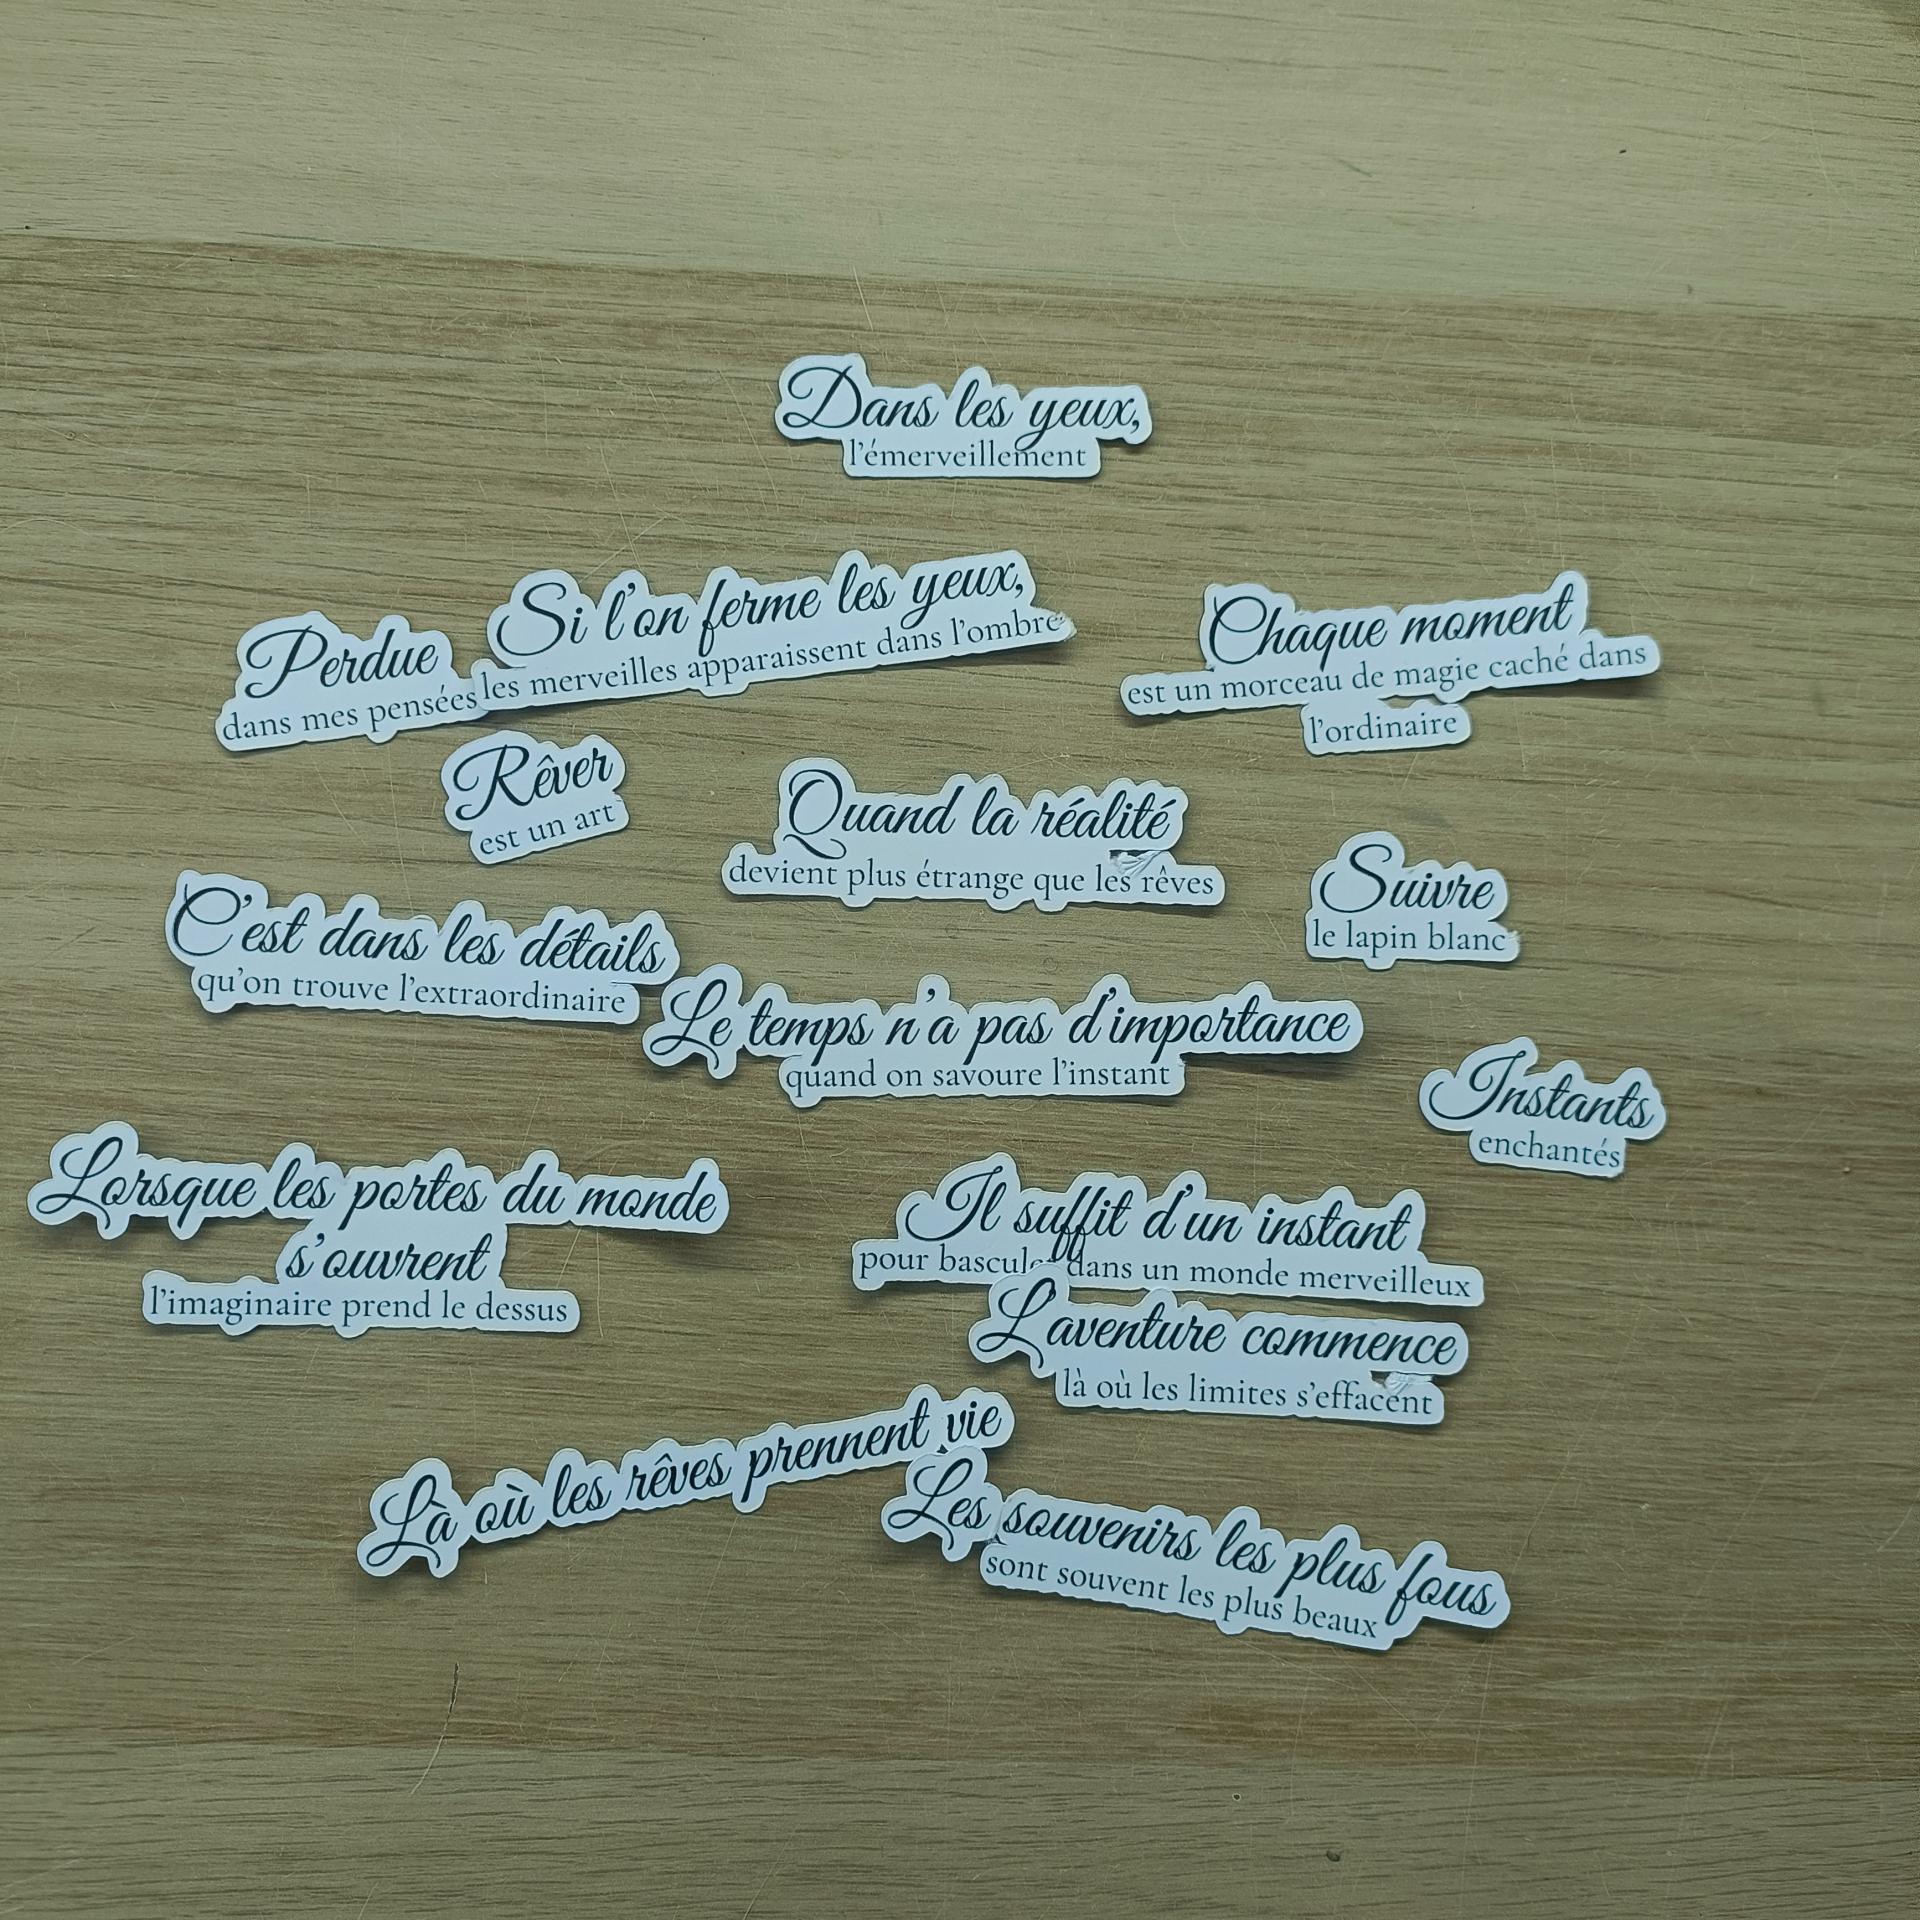 Dans les yeux,
l'émerveillement
Si l'on ferme les yeux,
les merveilles apparaissent dans l'ombre
Perdue
dans mes pensées
Chaque moment
est un morceau de magie caché dans
l'ordinaire
Rêver
est un art
Quand la réalité
devient plus étrange que les rêves
Suivre
le lapin blanc
C'est dans les détails
qu'on trouve l'extraordinaire
Le temps n'a pas d'importance
quand on savoure l'instant
Instants
enchantés
Lorsque les portes du monde
s'ouvrent
l'imaginaire prend le dessus
Il suffit d'un instant
pour basculer dans un monde merveilleux
L'aventure commence
là où les limites s'effacent
Là où les rêves prennent vie
Les souvenirs les plus fous
sont souvent les plus beaux